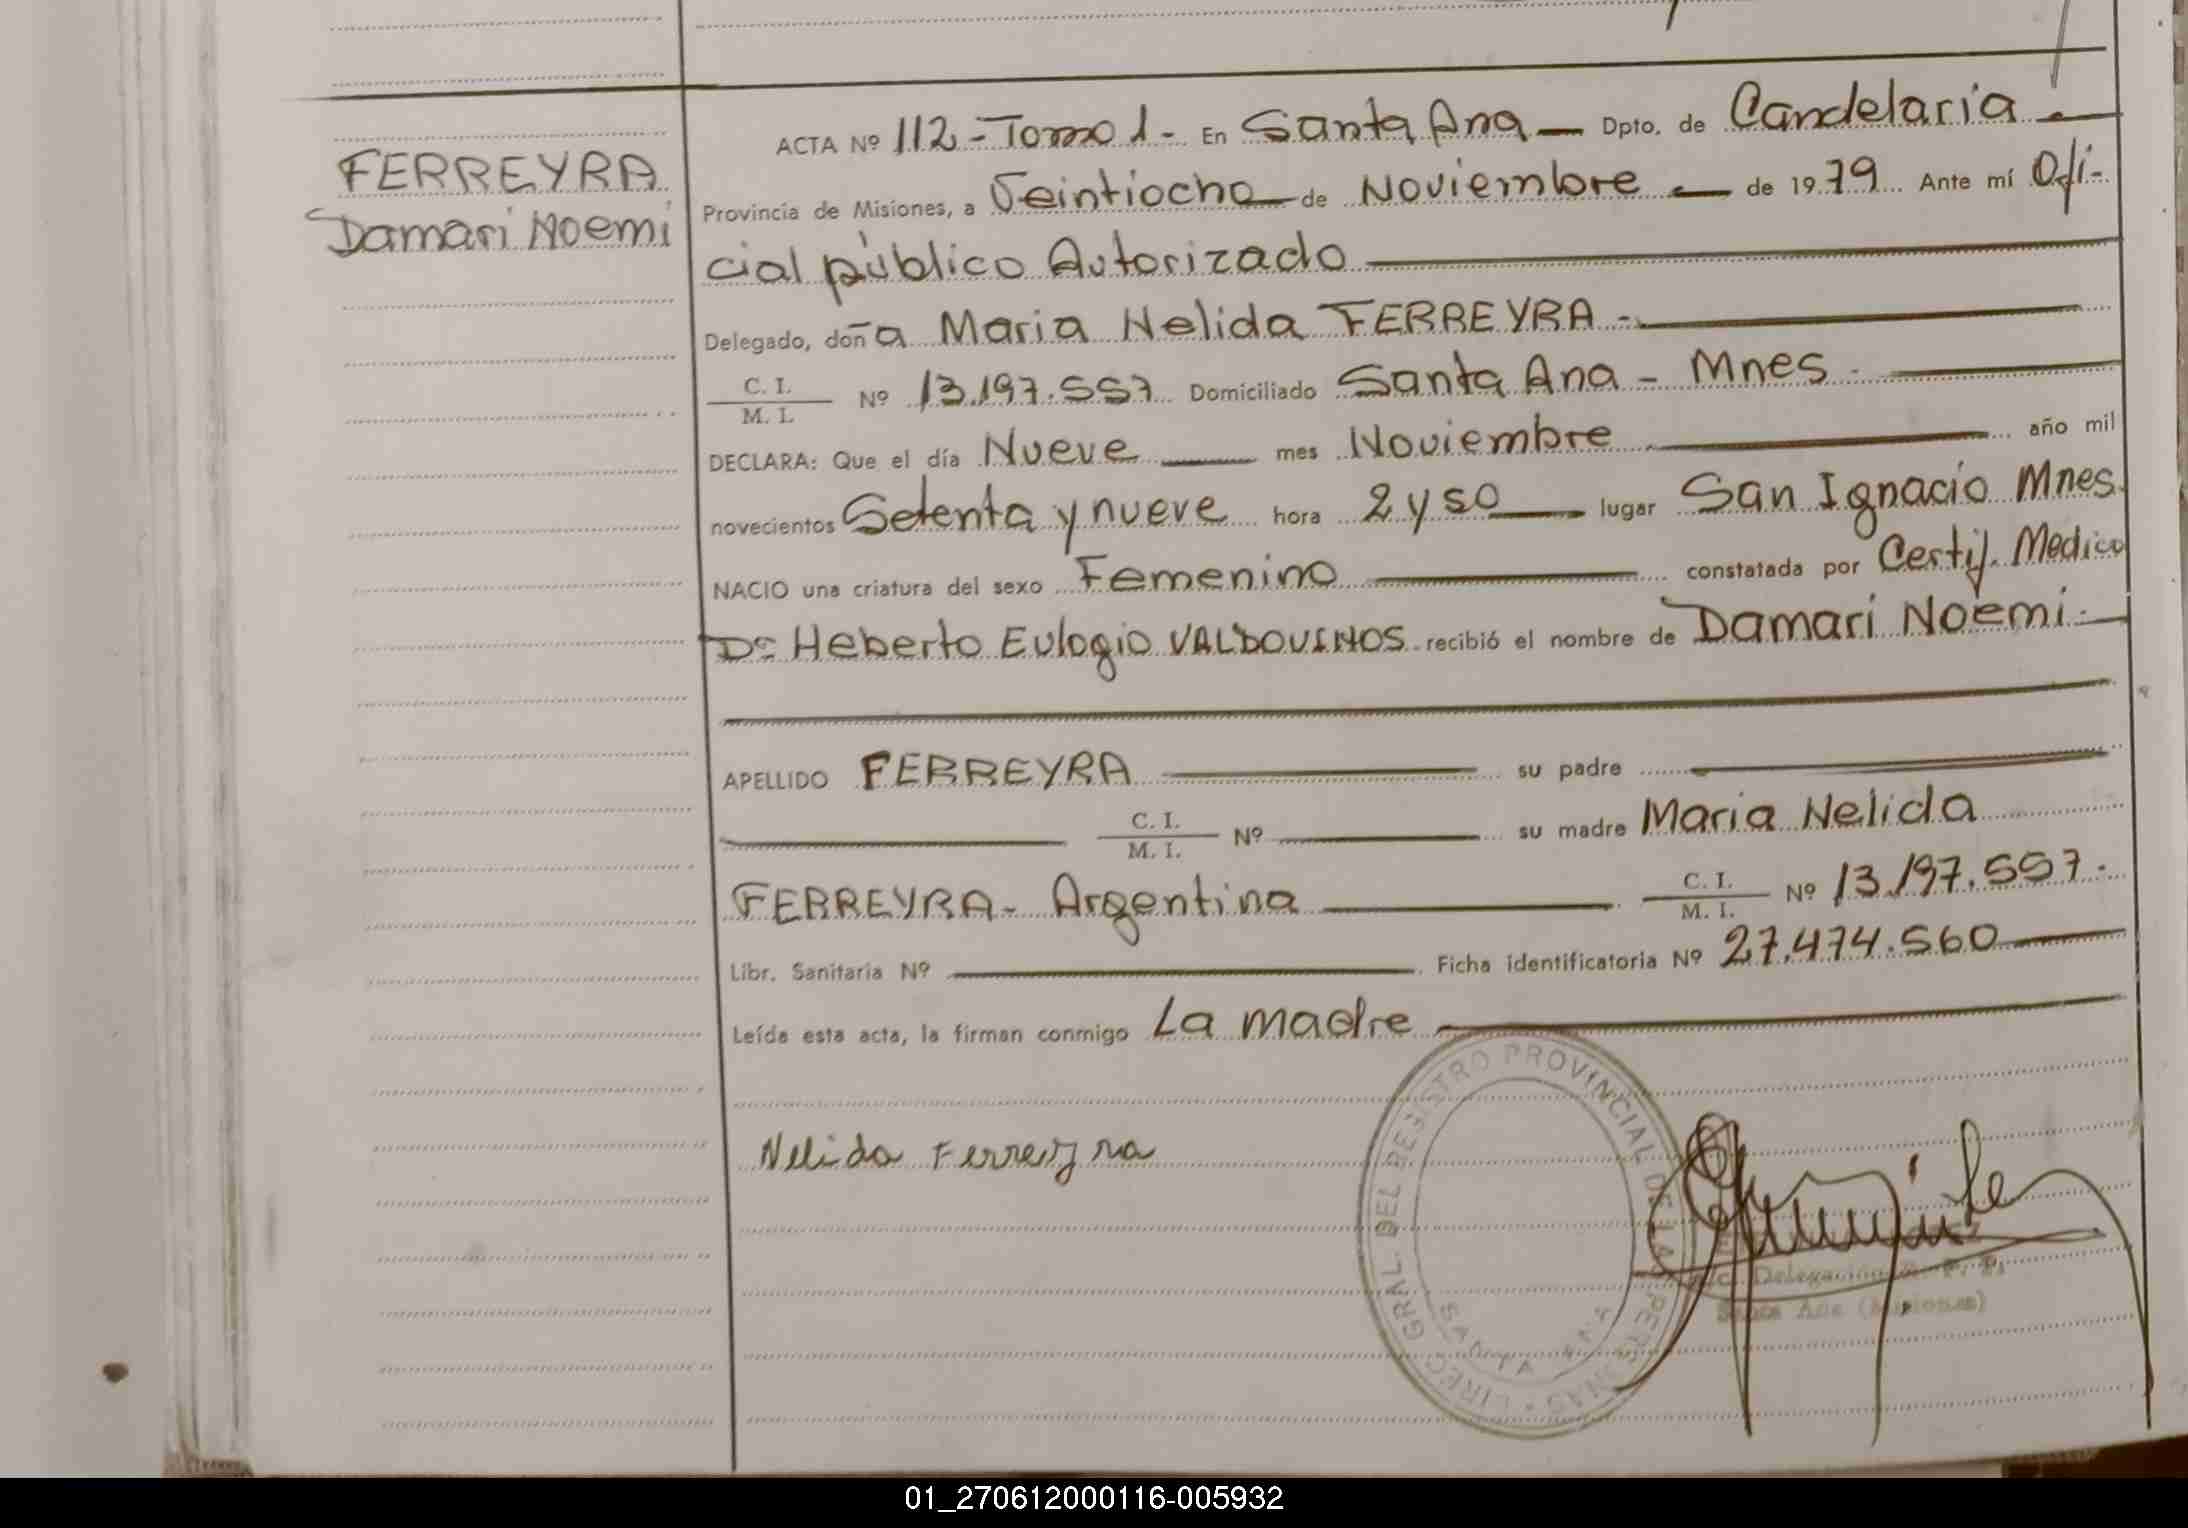 FERREYRA
Damari Noemi
ACTA Nº 112 - Tomo 1 - En Santa Ana — Dpto. de Candelaria —
Provincia de Misiones, a Veintiocho — de Noviembre — de 1979 Ante mí Ofi-
cial público Autorizado —
Delegado, doña Maria Nelida FERREYRA -
C. I.
M. I. Nº 13.197.557 Domiciliado Santa Ana - Mnes -
DECLARA: Que el día Nueve — mes Noviembre — año mil
novecientos Setenta y nueve hora 2 y 50 — lugar San Ignacio Mnes.
NACIO una criatura del sexo Femenino — constatada por Certif. Medico
Dr Heberto Eulogio VALDOVINOS recibió el nombre de Damari Noemi -
APELLIDO FERREYRA — su padre —
— C. I.
M. I. Nº — su madre Maria Nelida
FERREYRA - Argentina — C. I.
M. I. Nº 13.197.557.
Libr. Sanitaria Nº — Ficha identificatoria Nº 27.474.560 —
Leída esta acta, la firman conmigo La madre —
Nelida Ferreyra
DIREC. GRAL. DEL REGISTRO PROVINCIAL DE LAS PERSONAS
SANTA ANA
Delegación R. P. P.
Santa Ana (Misiones)
01_270612000116-005932